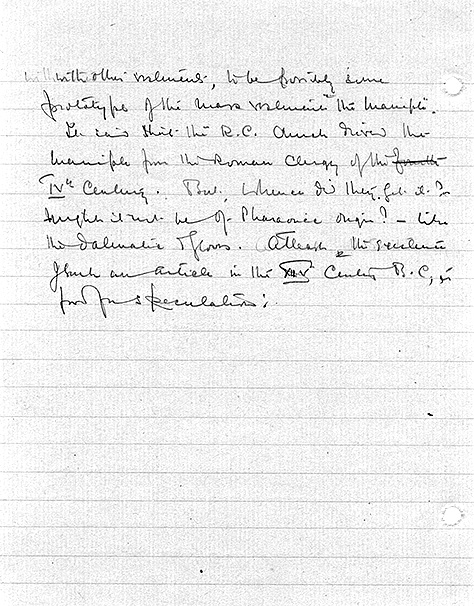 with other vestments, to be possibly some
prototype of the mass vestment "the maniple.
said that the R.C. Church derived the
maniple from the Roman Clergy of the
IVth Century. But, whence did they get it?
Might it not be of Pharaonic origin? – like
the dalmatic & gloves. At least the existence
of such an article in the Century B.C, is
food for speculation.